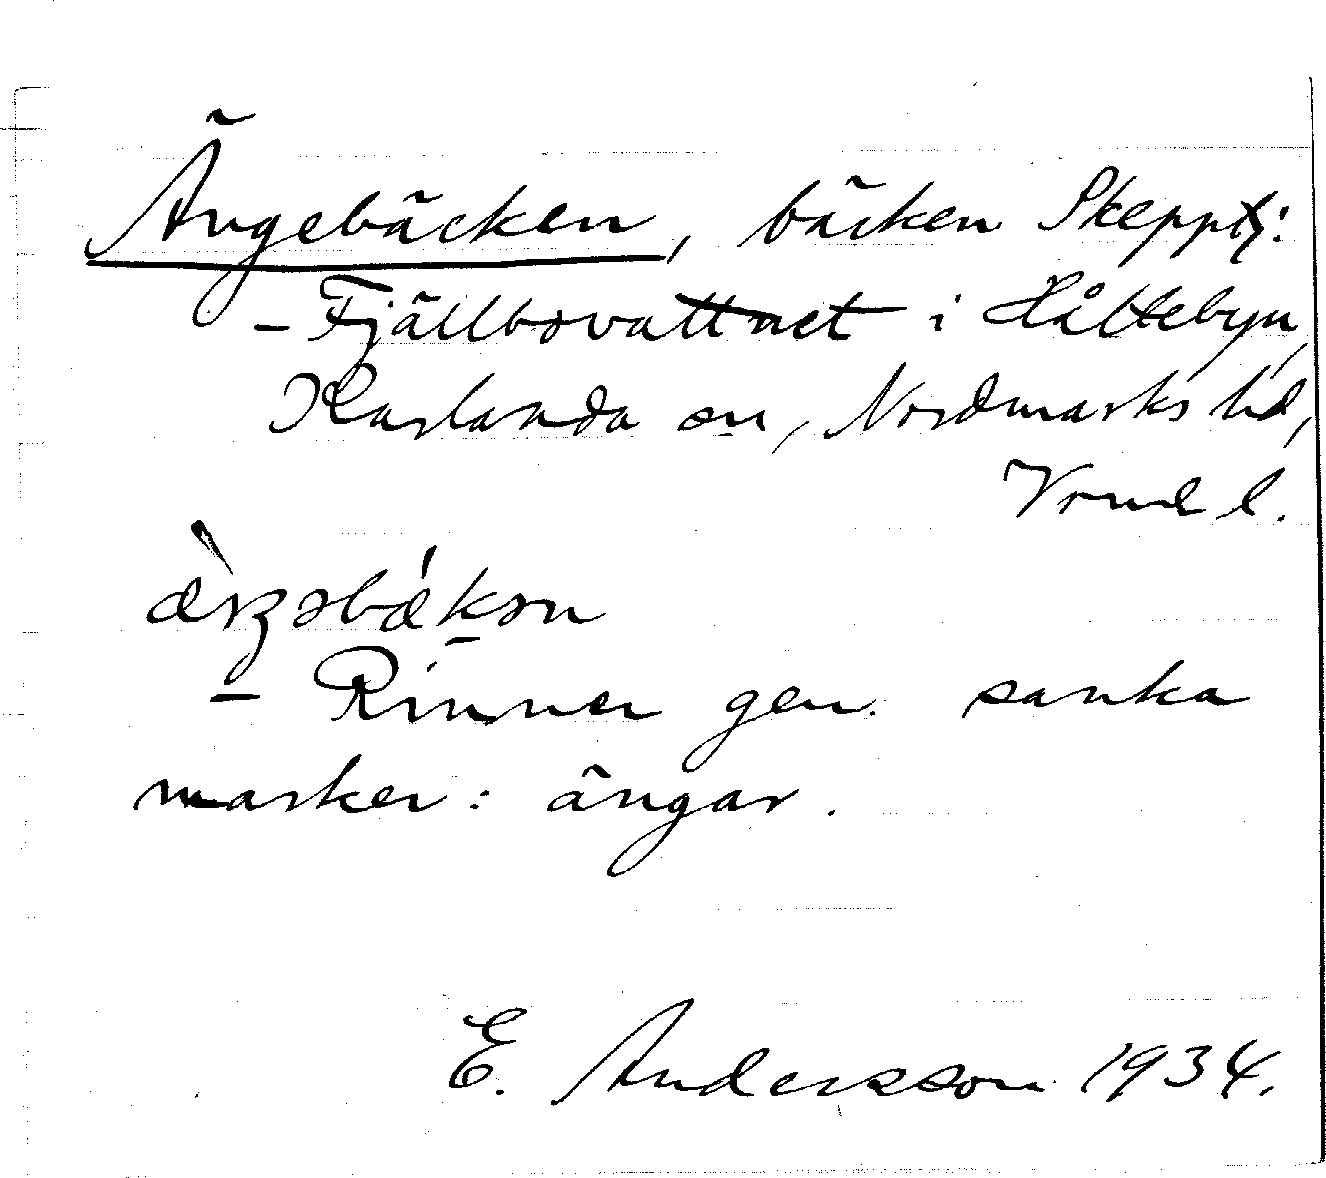 Ängebäcken, bäcken Skeppstj:
– Fjällbovattnet i Håltebyn,
Karlanda sn, Nordmarks hd,
Vrml l.
æ̀ŋəbǽkən
– Rinner gen. sanka
marker: ängar.
E. Andersson 1934.